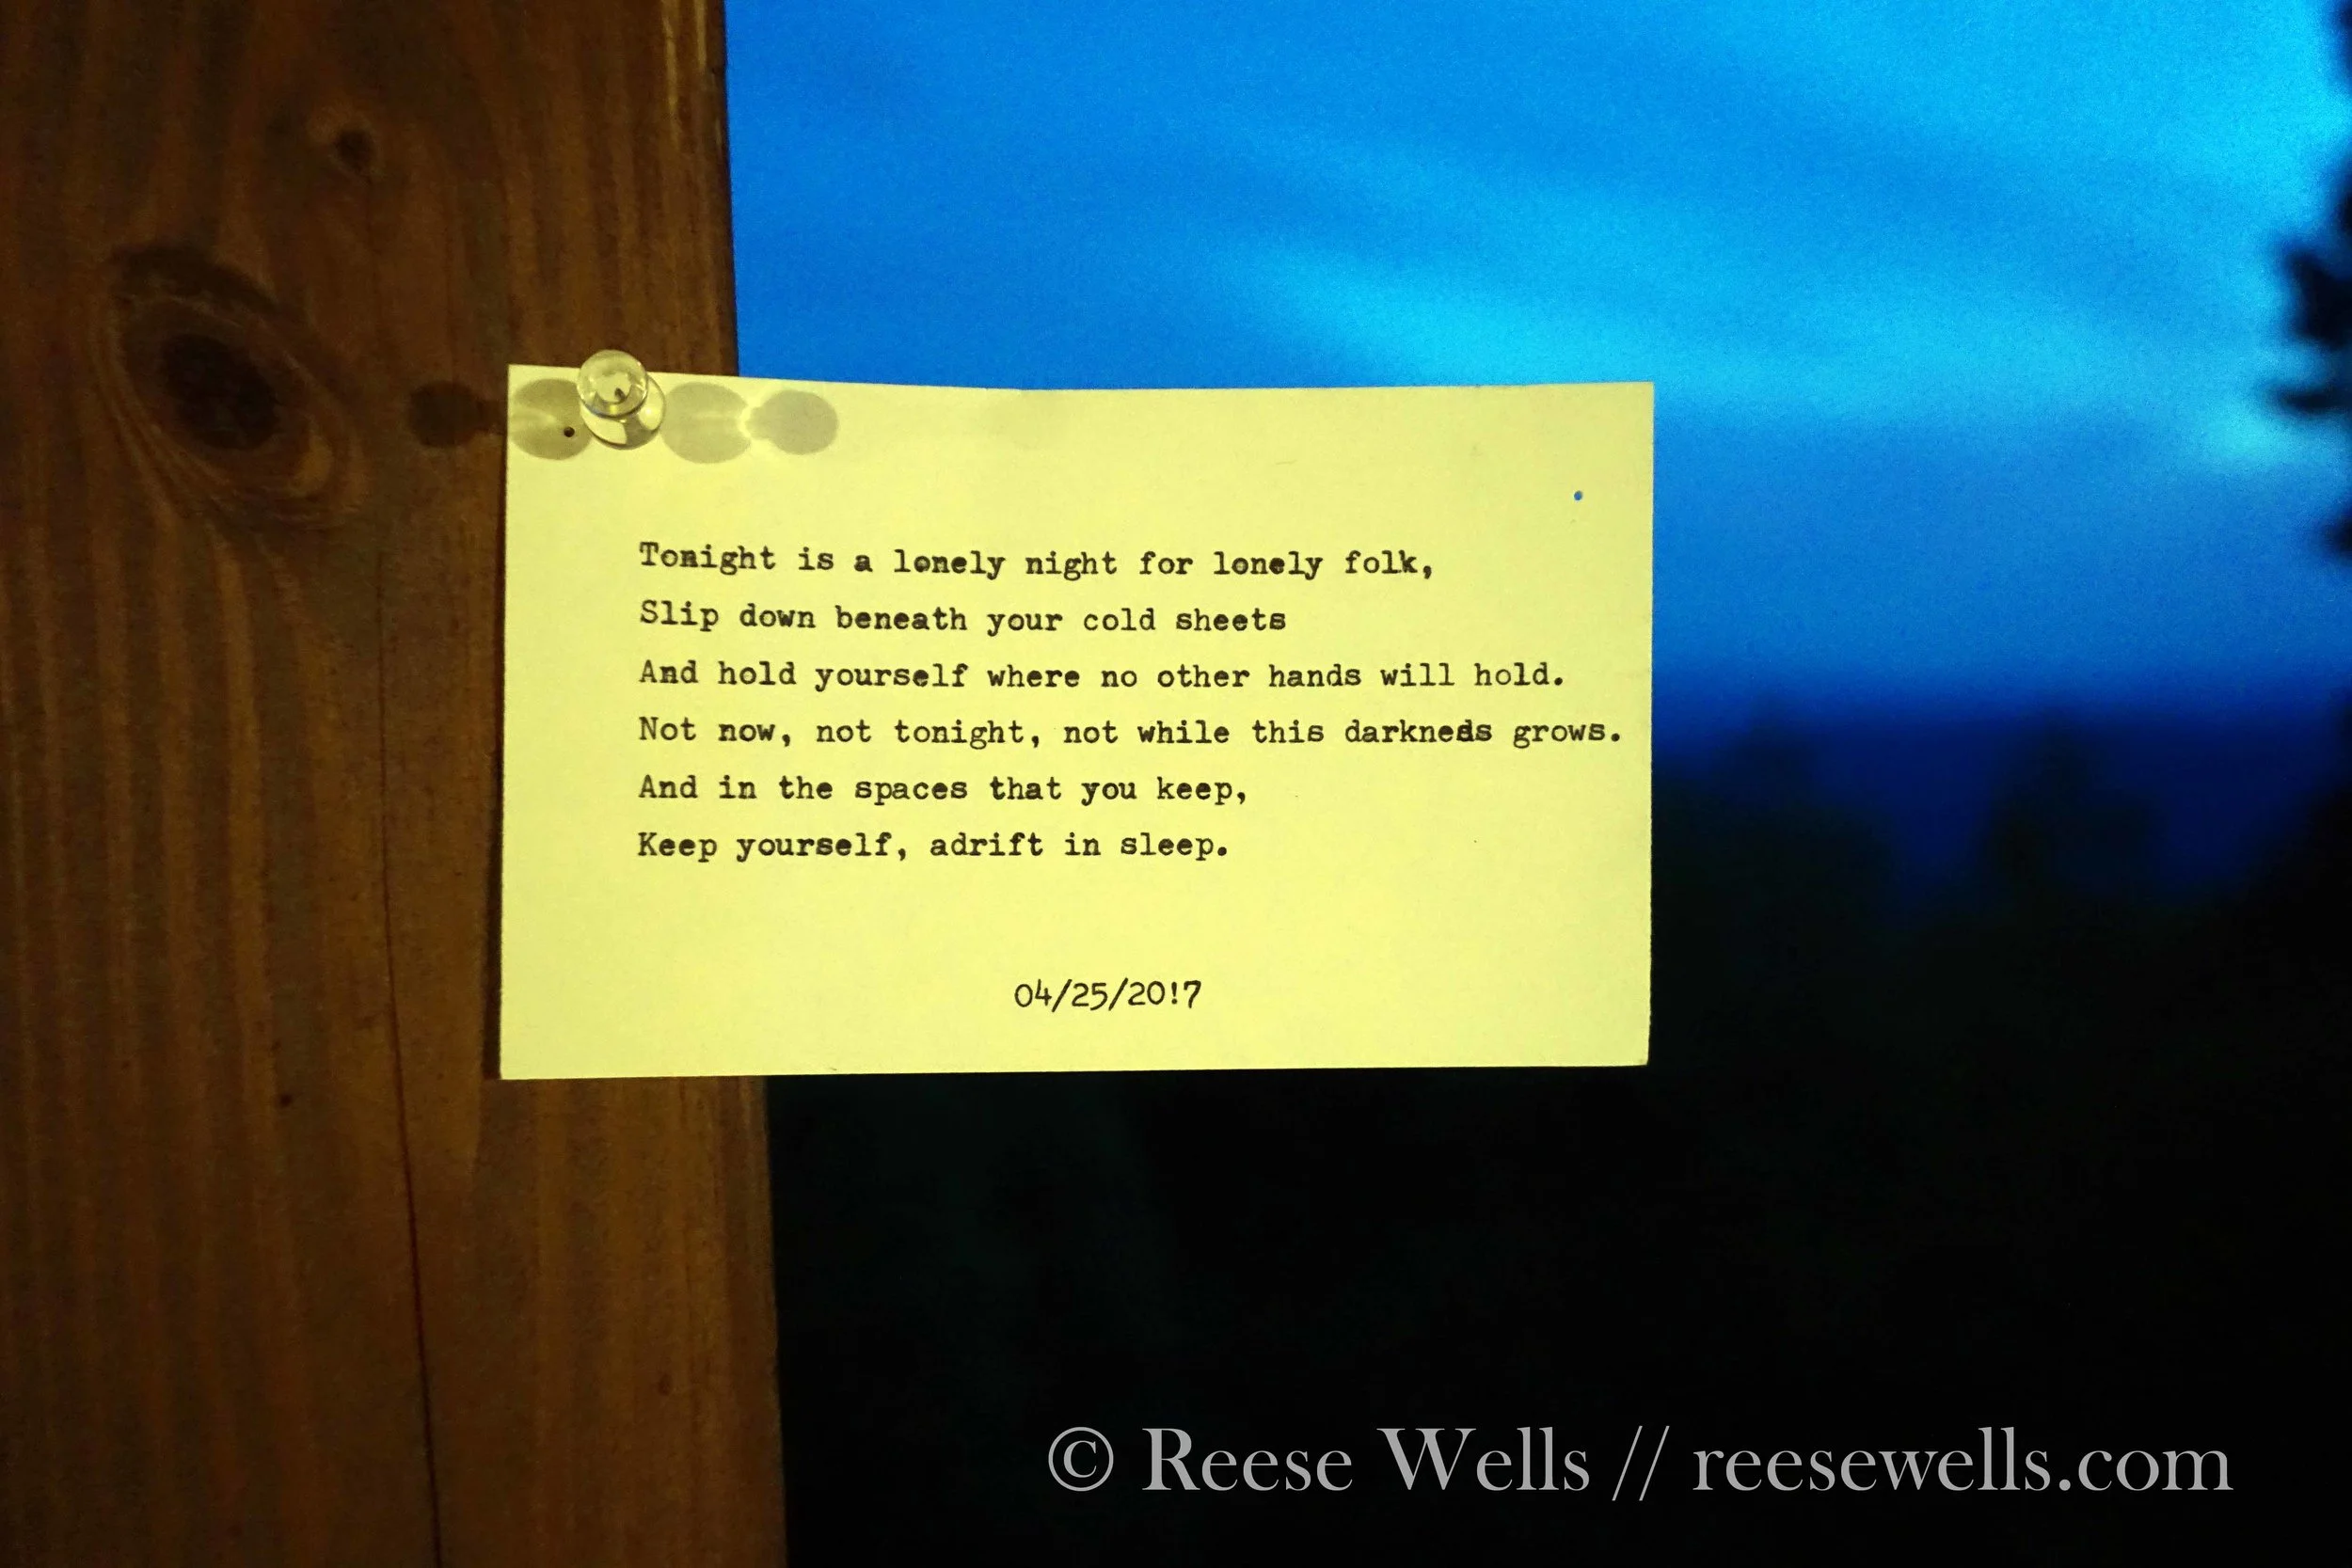 Tonight is a lonely night for lonely folk,
Slip down beneath your cold sheets
And hold yourself where no other hands will hold.
Not now, not tonight, not while this darkness grows.
And in the spaces that you keep,
Keep yourself, adrift in sleep.
04/25/20!7
© Reese Wells // reesewells.com